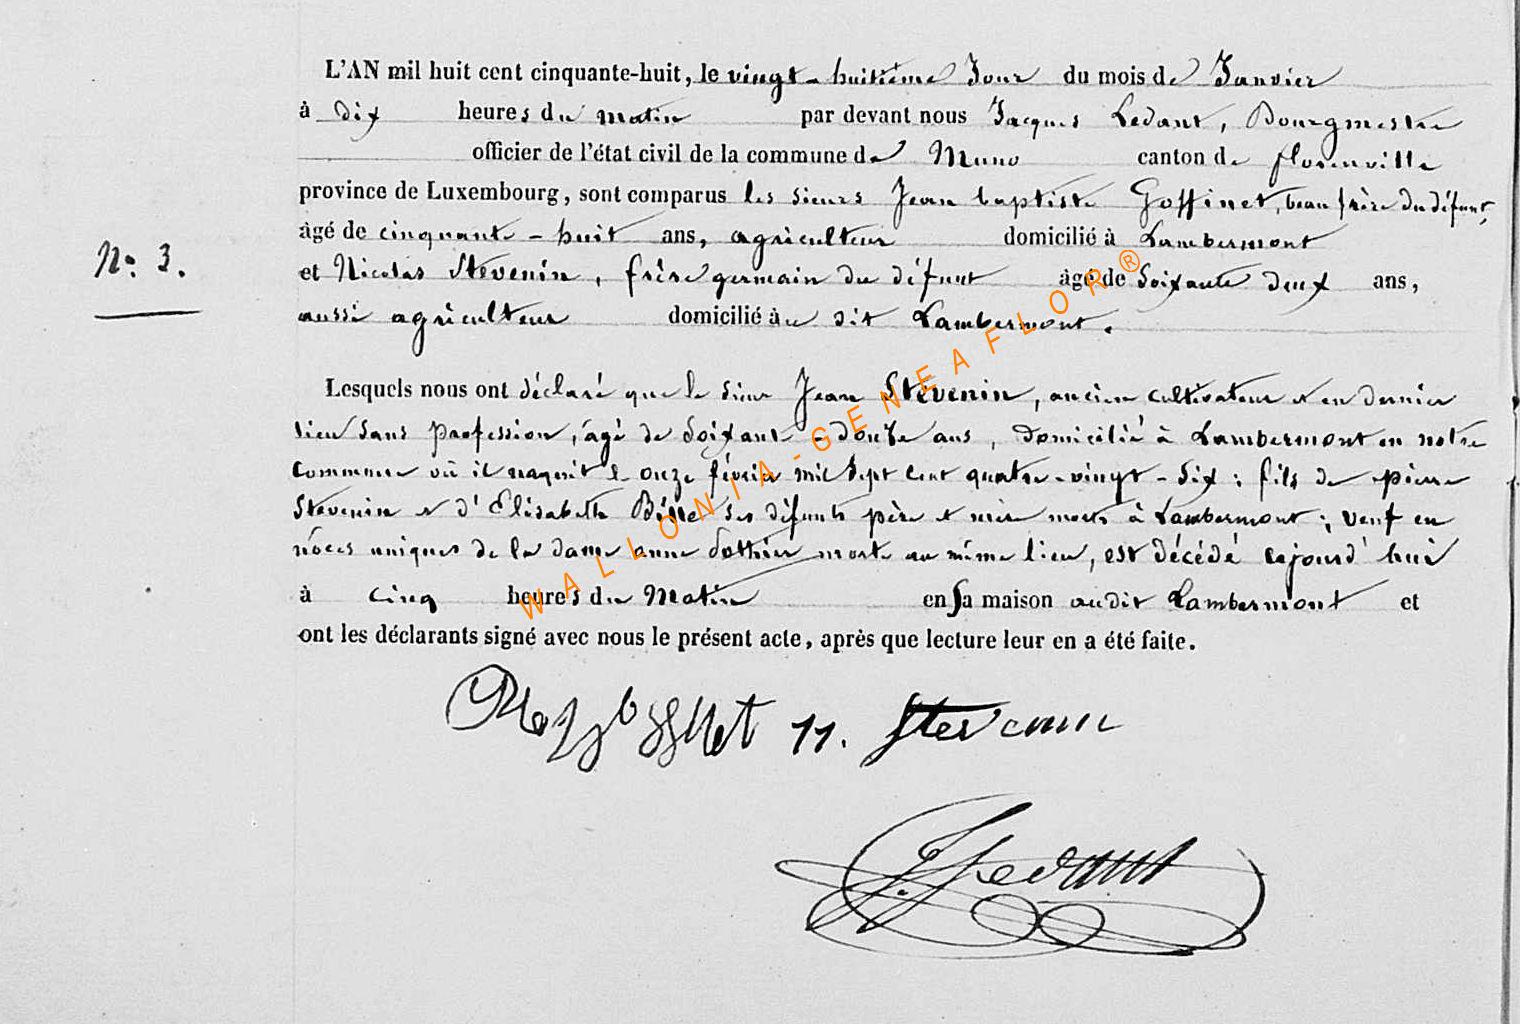 L'AN mil huit cent cinquante-huit, le vingt-huitième Jour du mois de Janvier
à dix heures du matin par devant nous Jacques Ledant, Bourgmestre
officier de l'état civil de la commune de Muno canton de florenville
province de Luxembourg, sont comparus les sieurs Jean baptiste Goffinet, beau frère du défunt,
âgé de cinquante-huit ans, agriculteur domicilié à Lambermont
N°. 3.
et Nicolas Stévenin, frère germain du défunt âgé de Soixante deux ans,
aussi agriculteur domicilié au dit Lambermont.
Lesquels nous ont déclaré que le sieur Jean Stévenin, ancien cultivateur et en dernier
lieu sans profession, âgé de soixante-douze ans, domicilié à Lambermont en notre
commune où il naquit le onze février mil sept cent quatre-vingt-six; fils de pierre
Stévenin et d'Elisabeth ses défunts père et mère morts à Lambermont; veuf en
nôces uniques de la dame anne morte au même lieu, est décédé cejourd'hui
à cinq heures du Matin en sa maison audit Lambermont et
ont les déclarants signé avec nous le présent acte, après que lecture leur en a été faite.
n. stevenin
J Ledant
WALLONIA-GENEAFLOR®